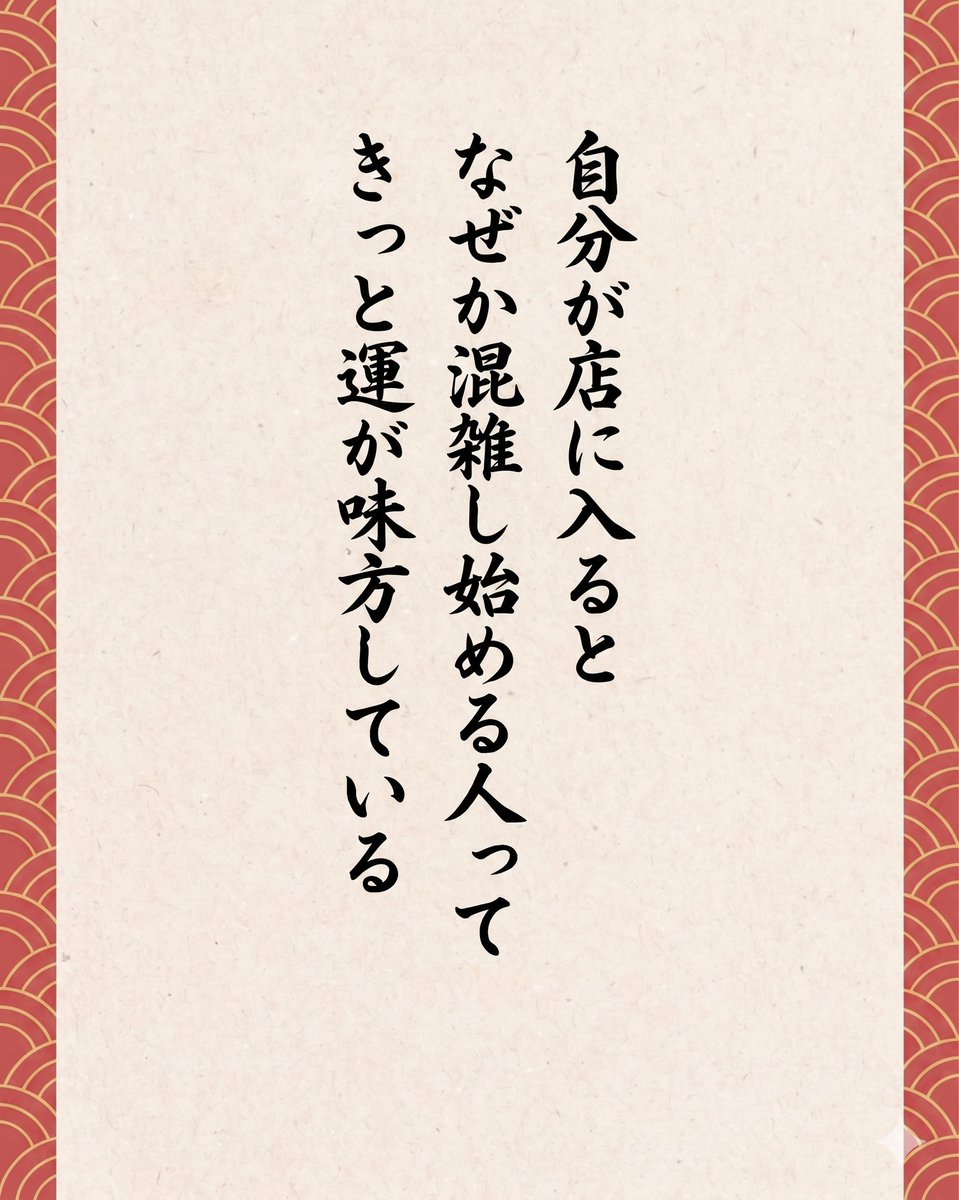 自分が店に入ると
なぜか混雑し始める人って
きっと運が味方している